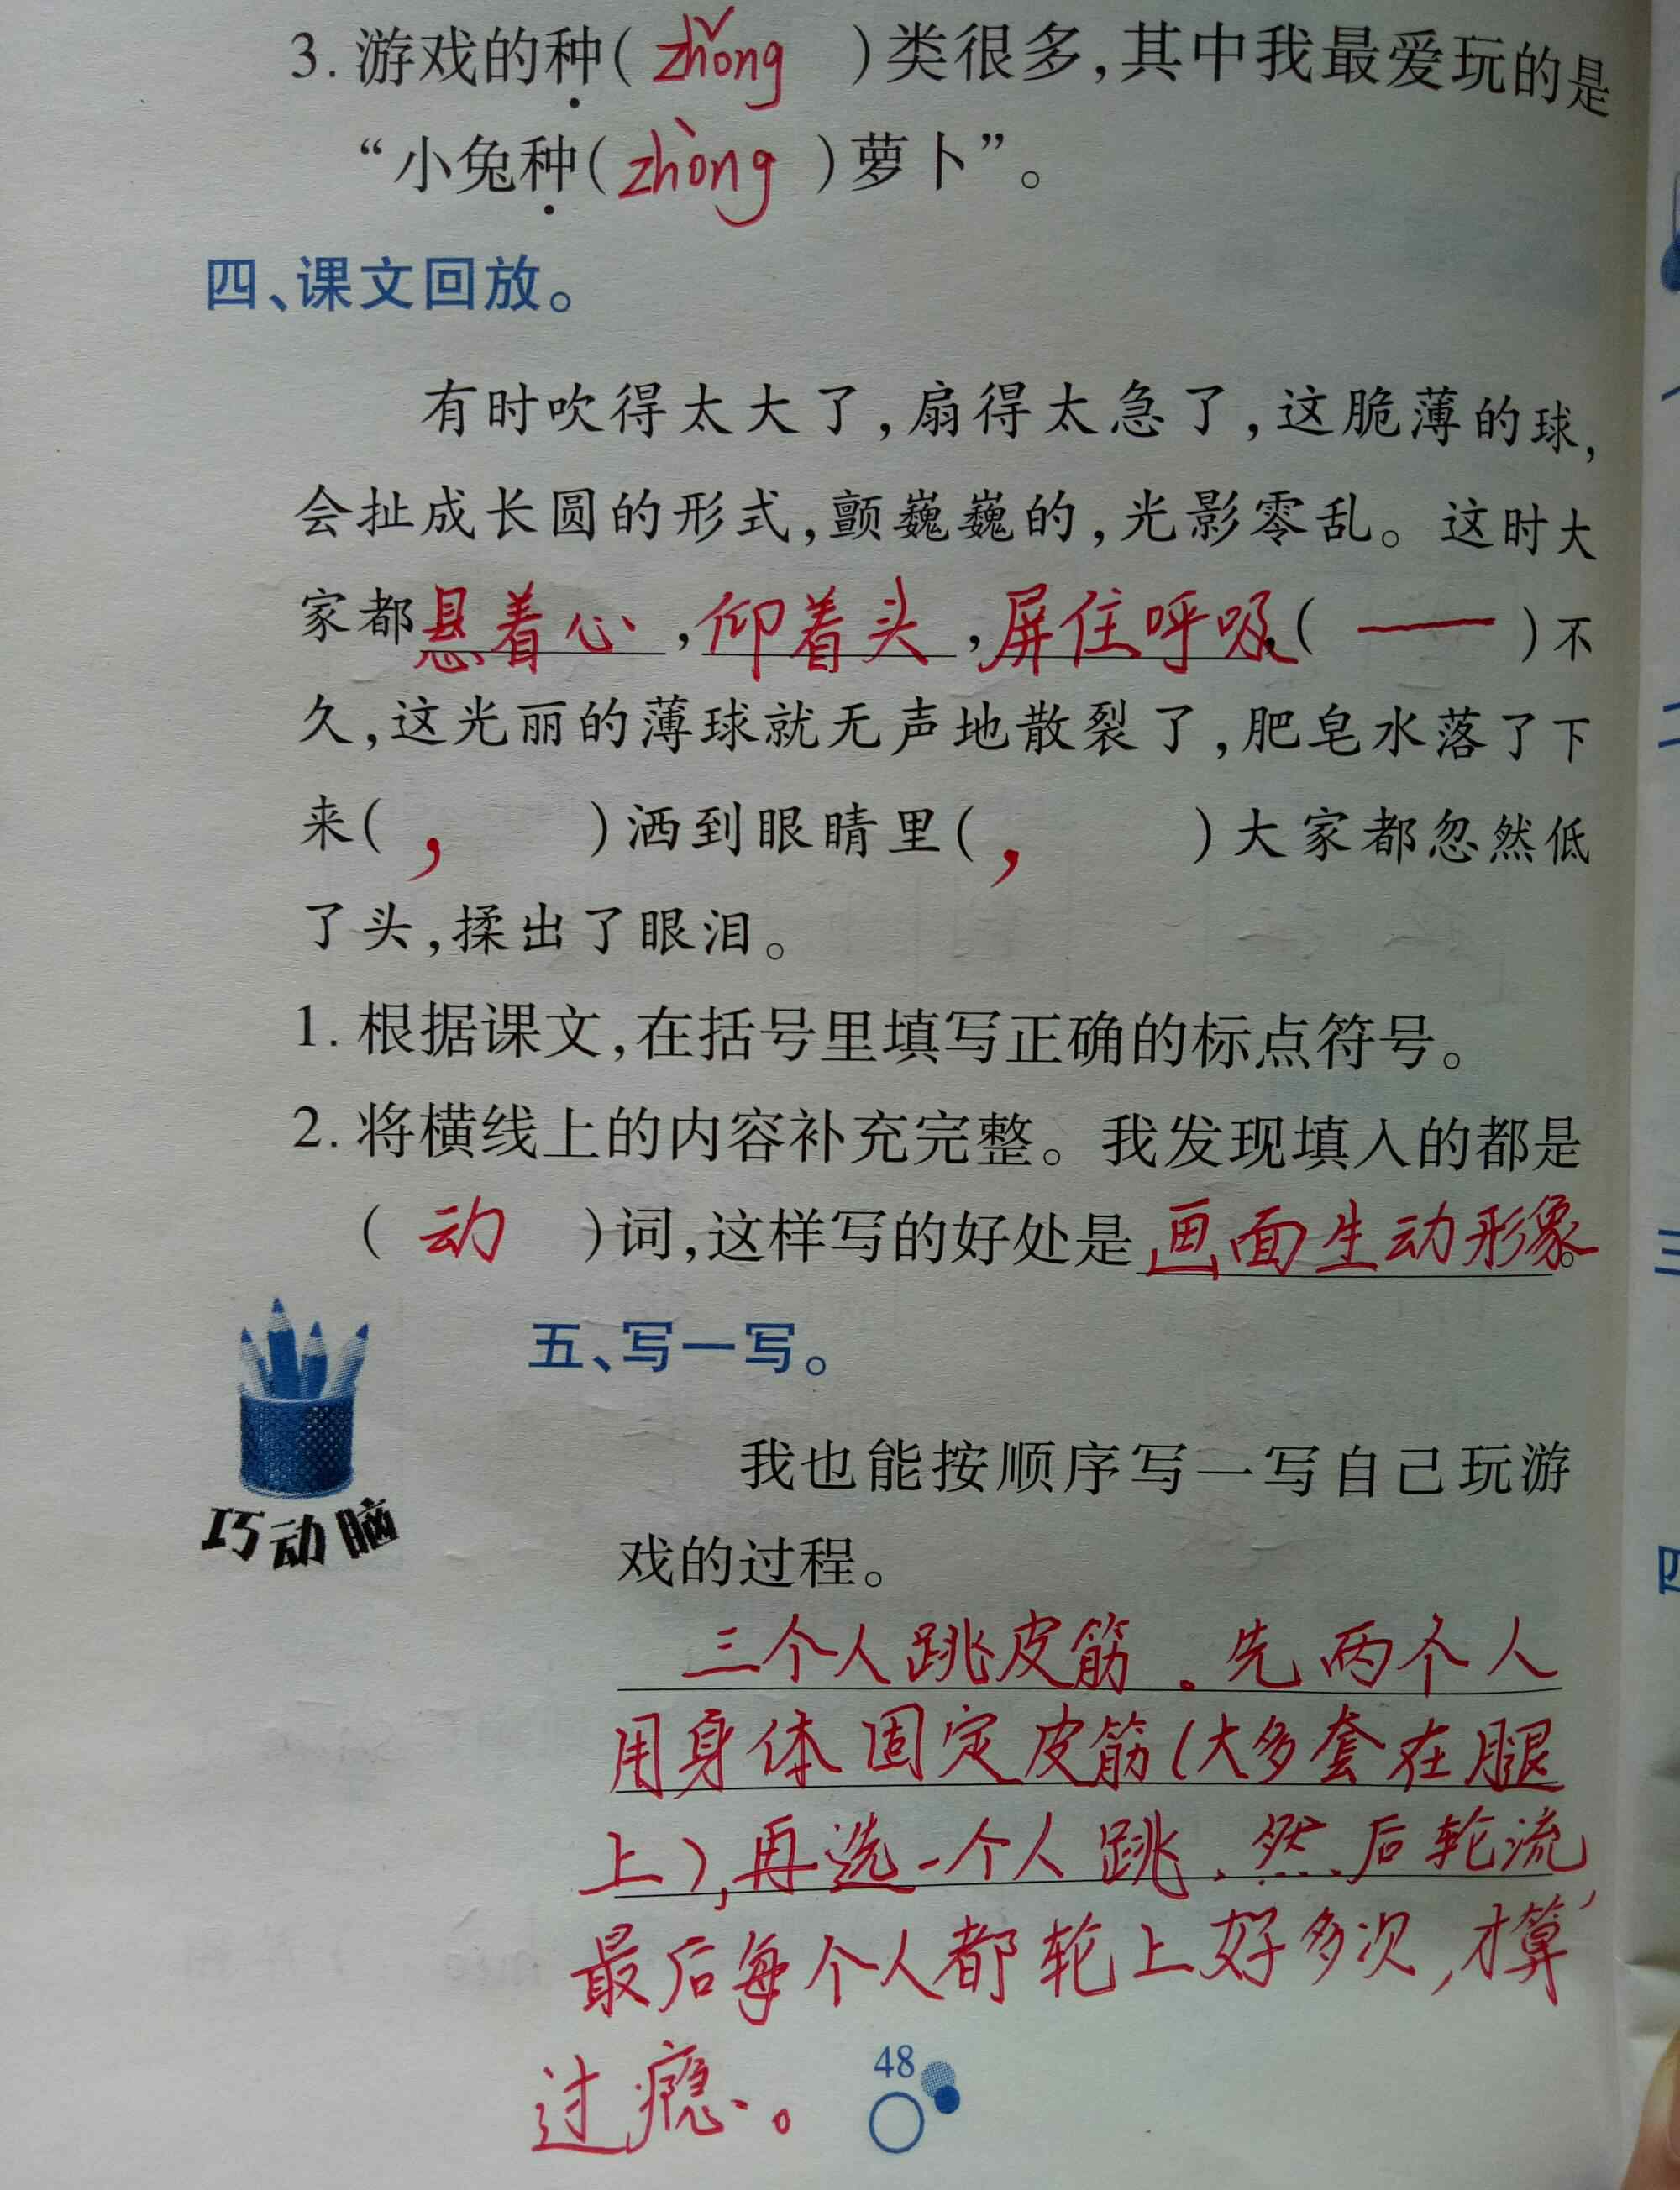 3. 游戏的种( zhǒng )类很多,其中我最爱玩的是
“小兔种( zhòng )萝卜”。
四、课文回放。
有时吹得太大了,扇得太急了,这脆薄的球,
会扯成长圆的形式,颤巍巍的,光影零乱。这时大
家都悬着心,仰着头,屏住呼吸( —— )不
久,这光丽的薄球就无声地散裂了,肥皂水落了下
来( , )洒到眼睛里( , )大家都忽然低
了头,揉出了眼泪。
1. 根据课文,在括号里填写正确的标点符号。
2. 将横线上的内容补充完整。我发现填入的都是
( 动 )词,这样写的好处是画面生动形象。
五、写一写。
巧动脑
我也能按顺序写一写自己玩游
戏的过程。
三个人跳皮筋。先两个人
用身体固定皮筋(大多套在腿
上),再选一个人跳、然后轮流,
最后每个人都轮上好多次,才算
过瘾。
48